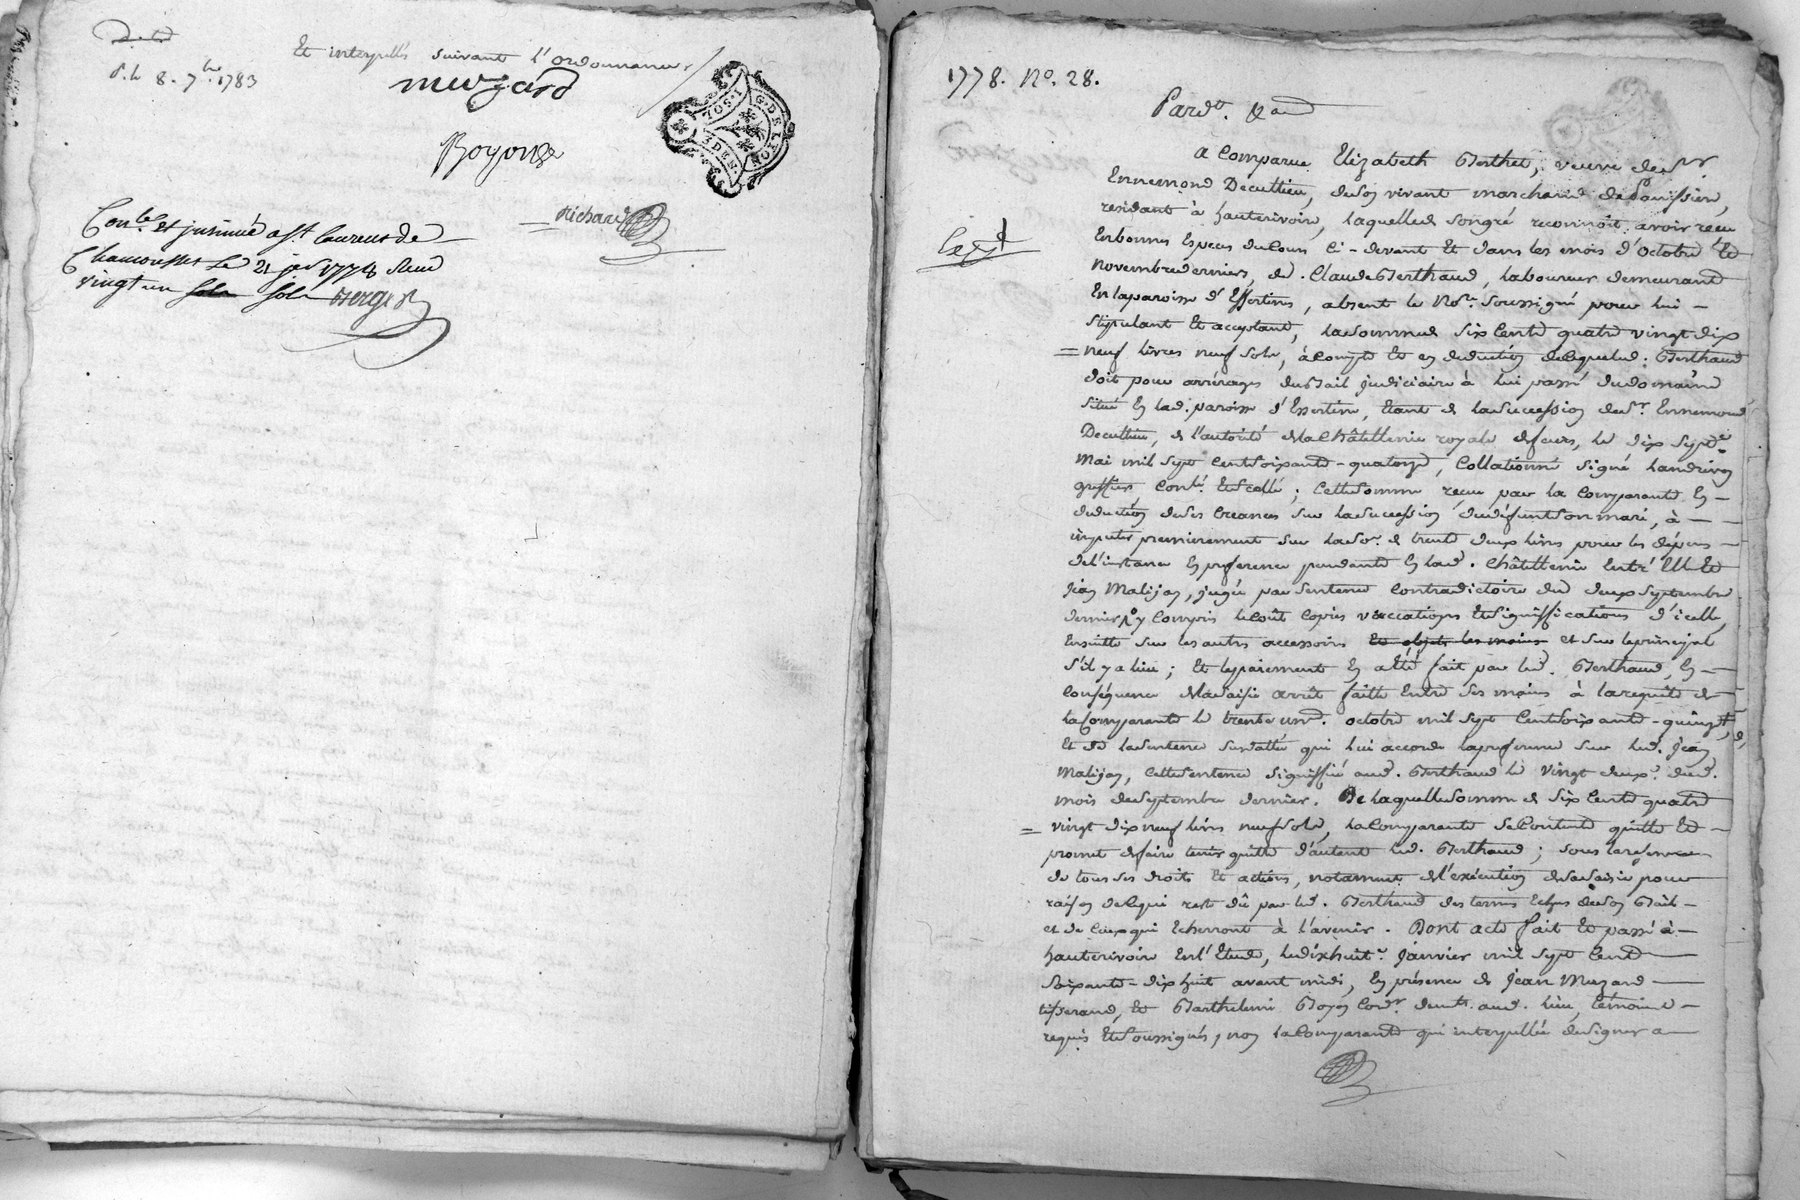 d. le 8. 7bre. 1783
Et interpellés suivant l'ordonnance /
muzard
Boyon
1. SOL 3 DEN.
G. DE LYON
Richard
Conlé. et insinué a St. Laurent de
Chamousset le 21 janv 1778 Reçu
vingt un sols Berger
1778. No. 28.
Pardt. &a
A Comparue Elizabeth Berthet, veuve de Sr.
Ennemond Decultieu, de son vivant marchand de
résidant à hauterivoire, laquelle de son gré reconnoît avoir reçu
En bonnes Especes du Cours Ci-devant Et dans les mois d'Octobre Et
Novembre derniers, de Claude Berthaud, laboureur demeurant
En la paroisse d'Essertines, absent le Nore. soussigné pour lui -
stipulant Et acceptant, la somme de Six Cents quatre vingt dix
= neuf livres neuf sols, à compte Et en déduction de ce que led. Berthaud
doit pour arrérages du Bail judiciaire à lui passé du domaine
situé En lad. paroisse d'Essertine, Etant de la Succession de Sr. Ennemond
Decultieu, de l'autorité de la Châtellenie royale de feurs, le dix sept
Mai mil sept Cent soixante-quatorze, Collationné signé
greffier Conlé. Et scellé ; Cette somme reçue par la Comparante En -
déduction de ses Creances sur la succession du défunt son mari, à -
imputer premierement sur la So. de trente deux livres pour les dépens -
de l'instance En préference pendante En lad. Châtellenie Entr'Elle Et
Jean Malijon, jugée par Sentence Contradictoire du deux Septembre
dernier, y Compris le coût Copies vaccations Et Signiffications d'icelle,
Ensuitte sur les autres accessoires et sur le principal
s'il y a lieu ; Et le paiement En a Eté fait par led. Berthaud, En -
Conséquence de la Saisie arrêt faitte Entre ses mains à la requête de
la Comparante le trente un d. octobre mil sept Cent Soixante-quinze,
Et de la Sentence susdattée qui lui accorde la préference sur led. Jean
Malijon, Cette Sentence Signiffiée aud. Berthaud le vingt deux dud.
mois de Septembre dernier. De laquelle Somme de Six Cents quatre
= vingt dix neuf livres neuf sols, la Comparante se Contente quitte Et -
promet de faire tenir quitte d'autant led. Berthaud ; sous la réserve
de tous ses droits Et actions, notamment de l'exécution de sa Saisie pour
raison de ce qui reste dû par led. Berthaud des termes Echus de son Bail -
et de Ceux qui Echerront à l'avenir. Dont acte fait Et passé à -
hauterivoire En l'Etude, le dixhuit Janvier mil sept Cent
Soixante-dix huit avant midi, En présence de Jean Muzard
tisserand, Et Barthelemi Boyon Cordr. demts. aud. lieu, témoins -
requis Et Soussignés, non la Comparante qui interpellée de signer a